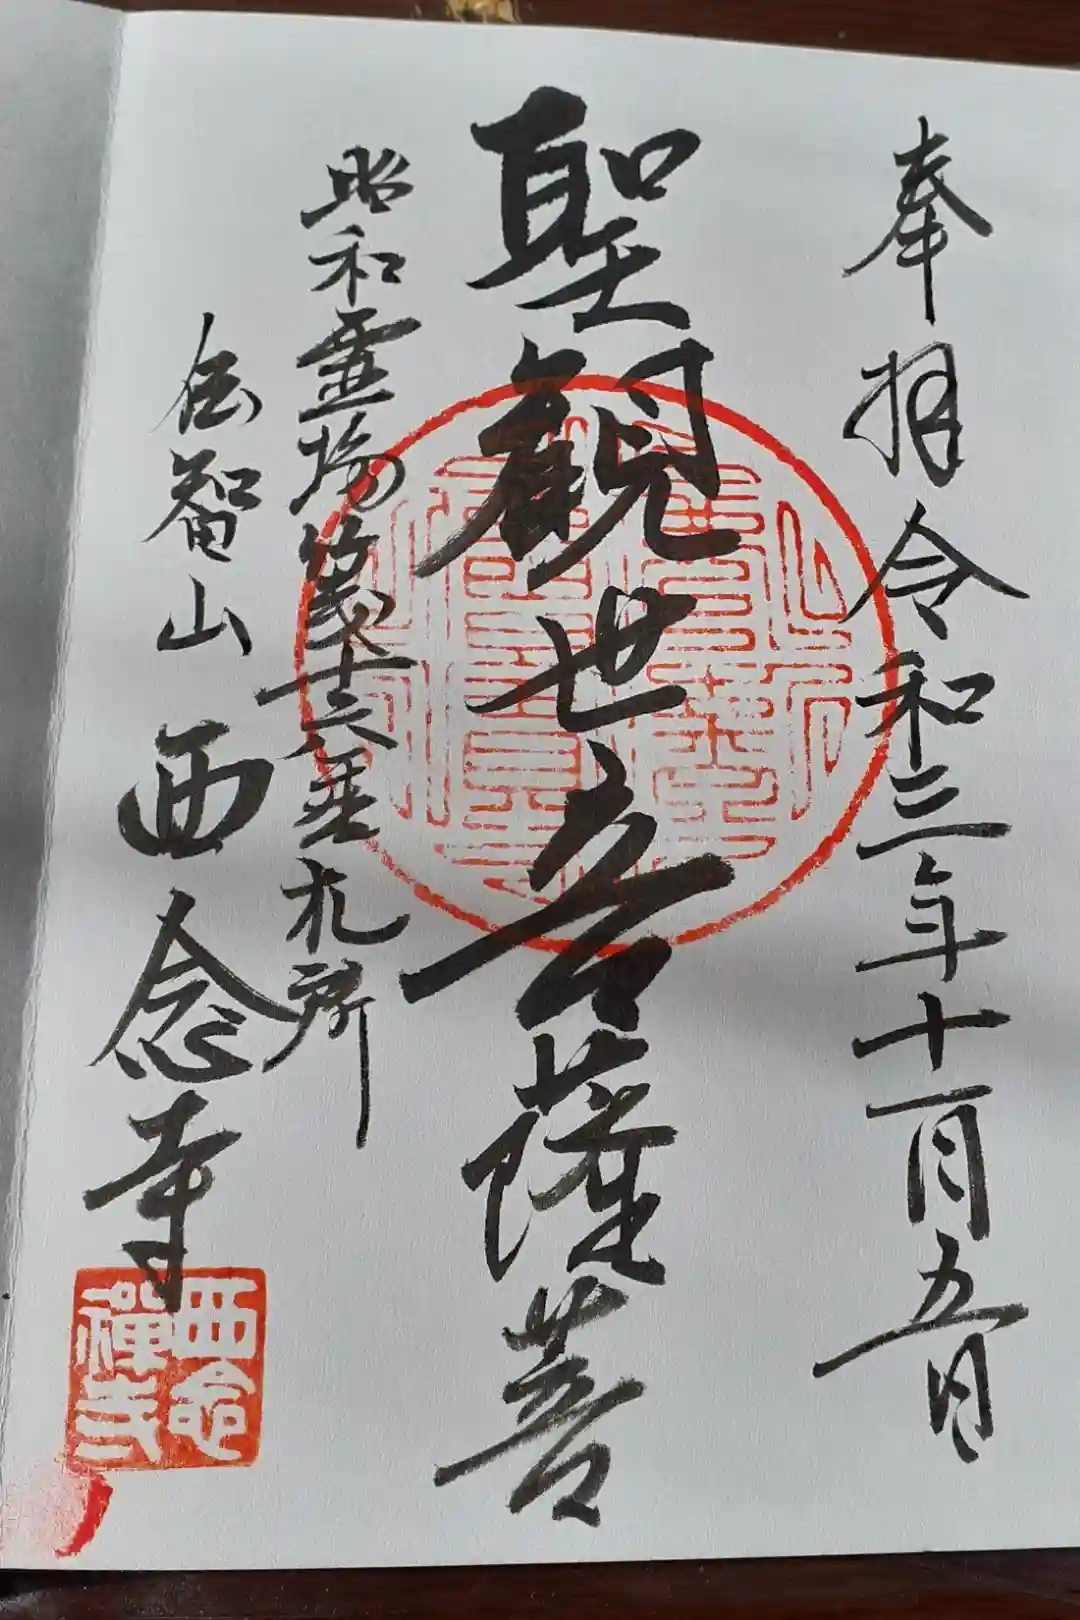 奉拝 令和三年十一月五日
聖観世音薩菩
昭和霊場 十六番札所
智山 西念寺
西念
禪寺